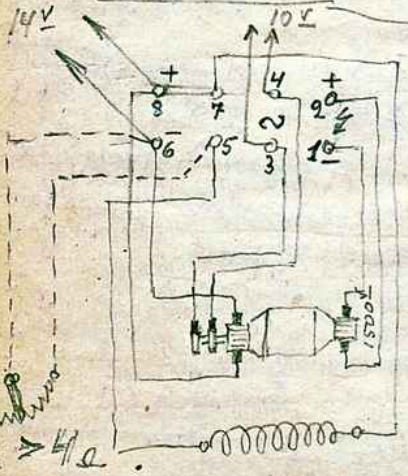 14 V 10 V
+ 4 +
8 7 2
6 – 5 ~ 3 1 –
1500 V
> 4 Ω